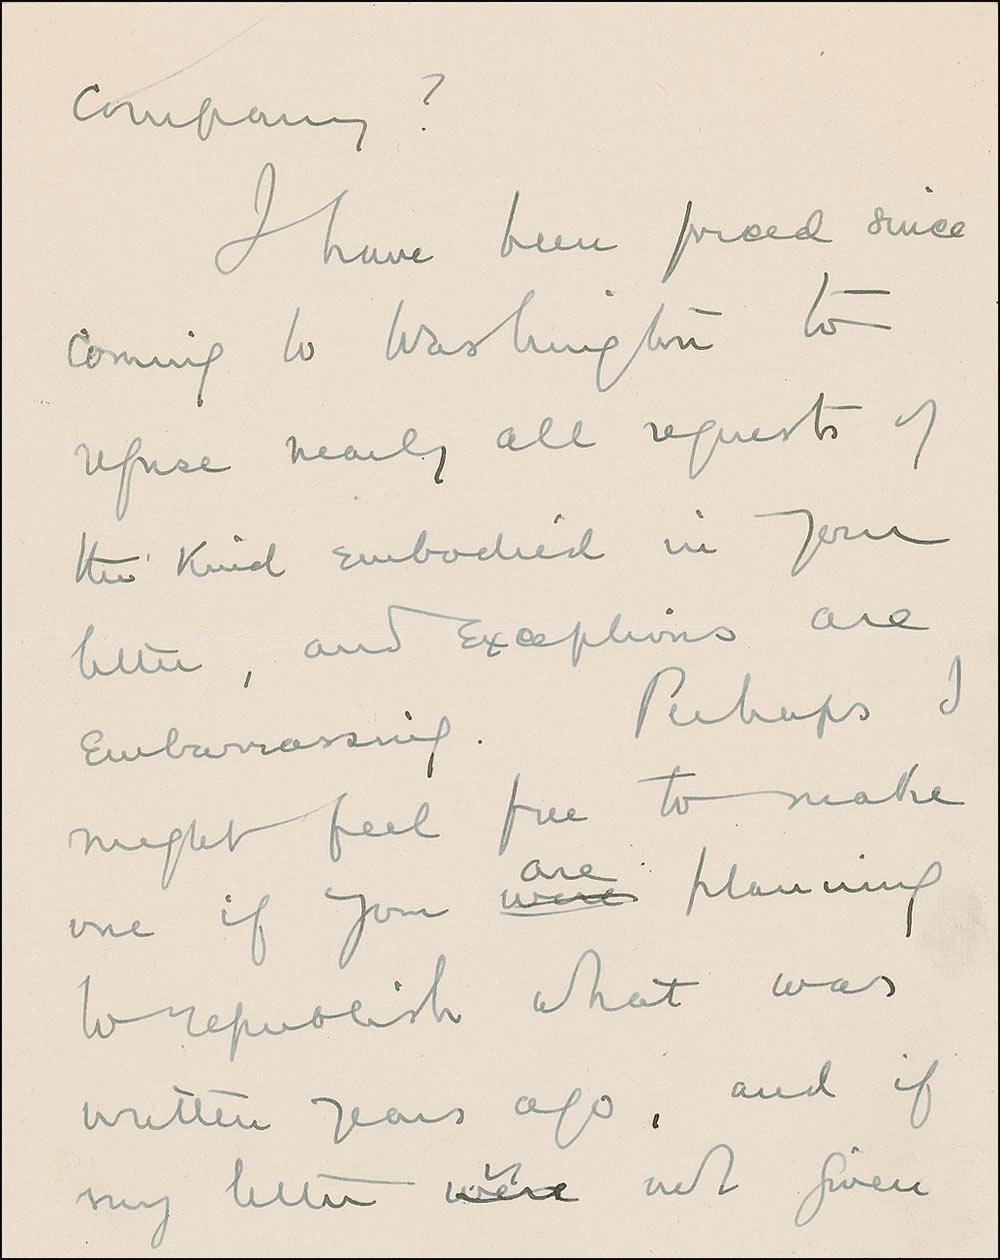 Company?
I have been forced since
coming to Washington to
refuse nearly all requests of
the kind embodied in your
letter, and exceptions are
embarrassing. Perhaps I
might feel free to make
one if you were are planning
to republish what was
written years ago, and if
my letter were not given